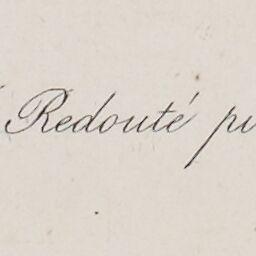 Redouté